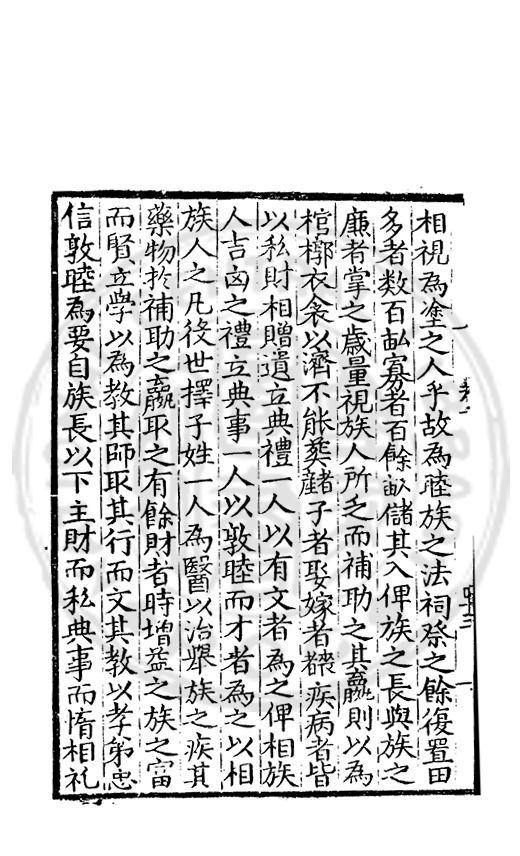 相視為塗之人乎故為睦族之法祠祭之餘復置田
多者数百畝寡者百餘畝儲其入俾族之長與族之
廉者掌之歳量視族人所乏而補助之其贏則以為
棺槨衣衾以濟不能葬者子者娶嫁者疾病者皆
以私財相贈遺立典禮一人以有文者為之俾相族
人吉凶之禮立典事一人以敦睦而才者為之以相
族人之凡役世擇子姓一人為醫以治舉族之疾其
藥物於補助之贏取之有餘財者時增益之族之富
而賢立學以為教其師取其行而文其教以孝弟忠
信敦睦為要自族長以下主財而私典事而惰相礼